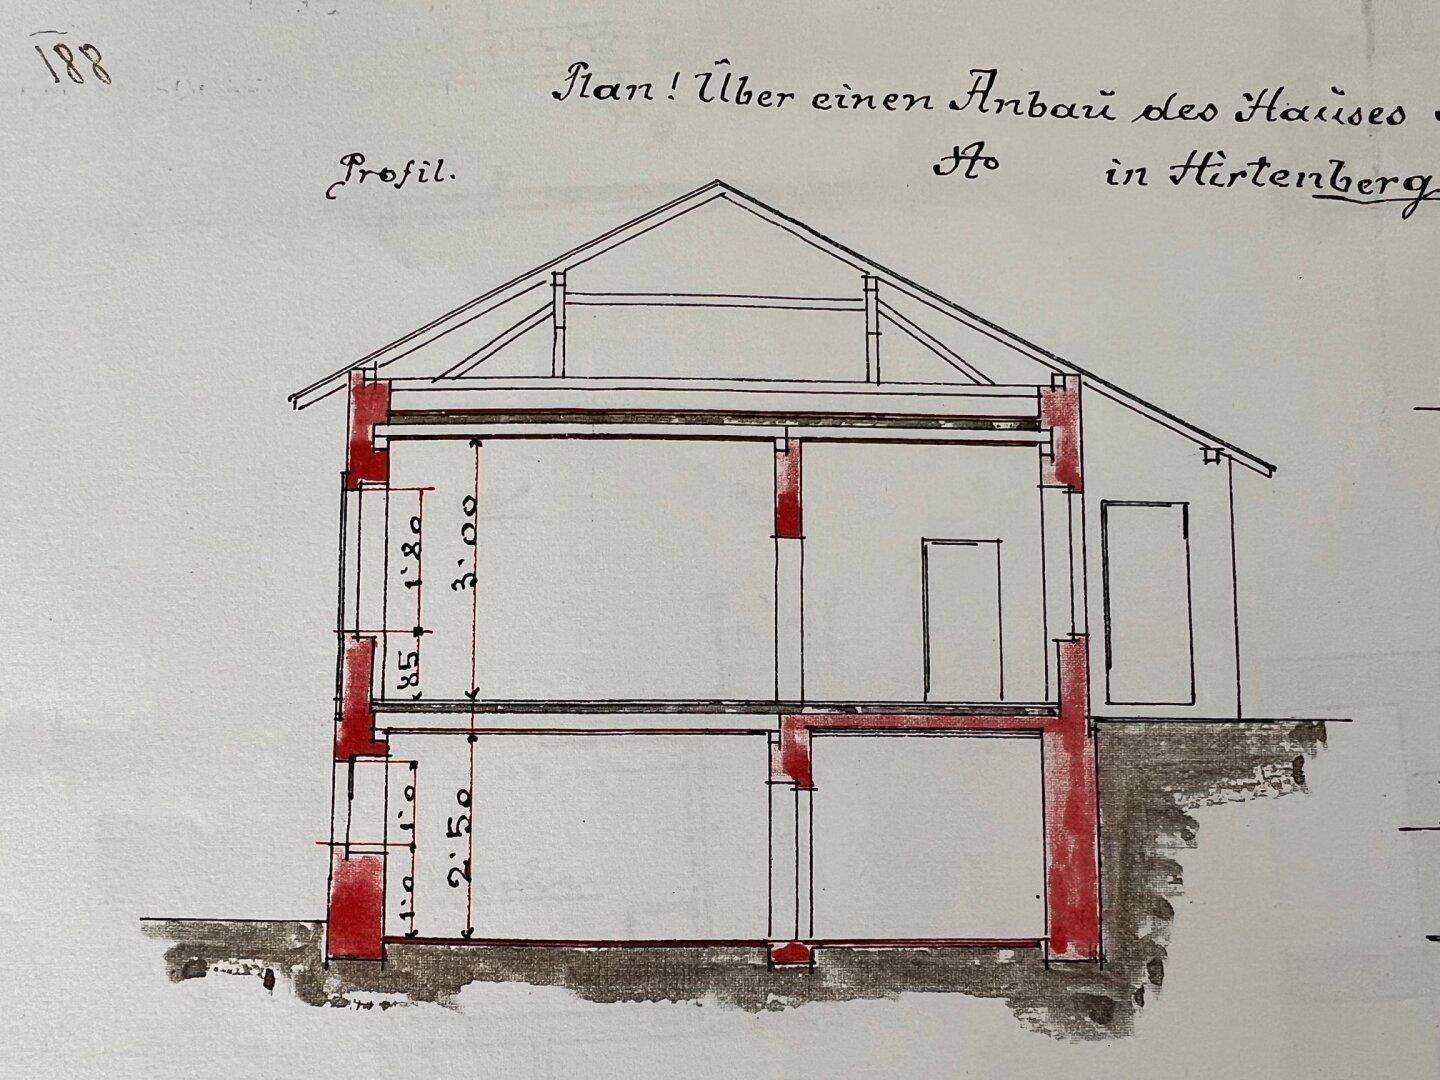 188
Plan! Über einen Anbaŭ des Haŭses
Profil.
No in Hirtenberg
1'80
3'00
85
1'0
2'50
1'0